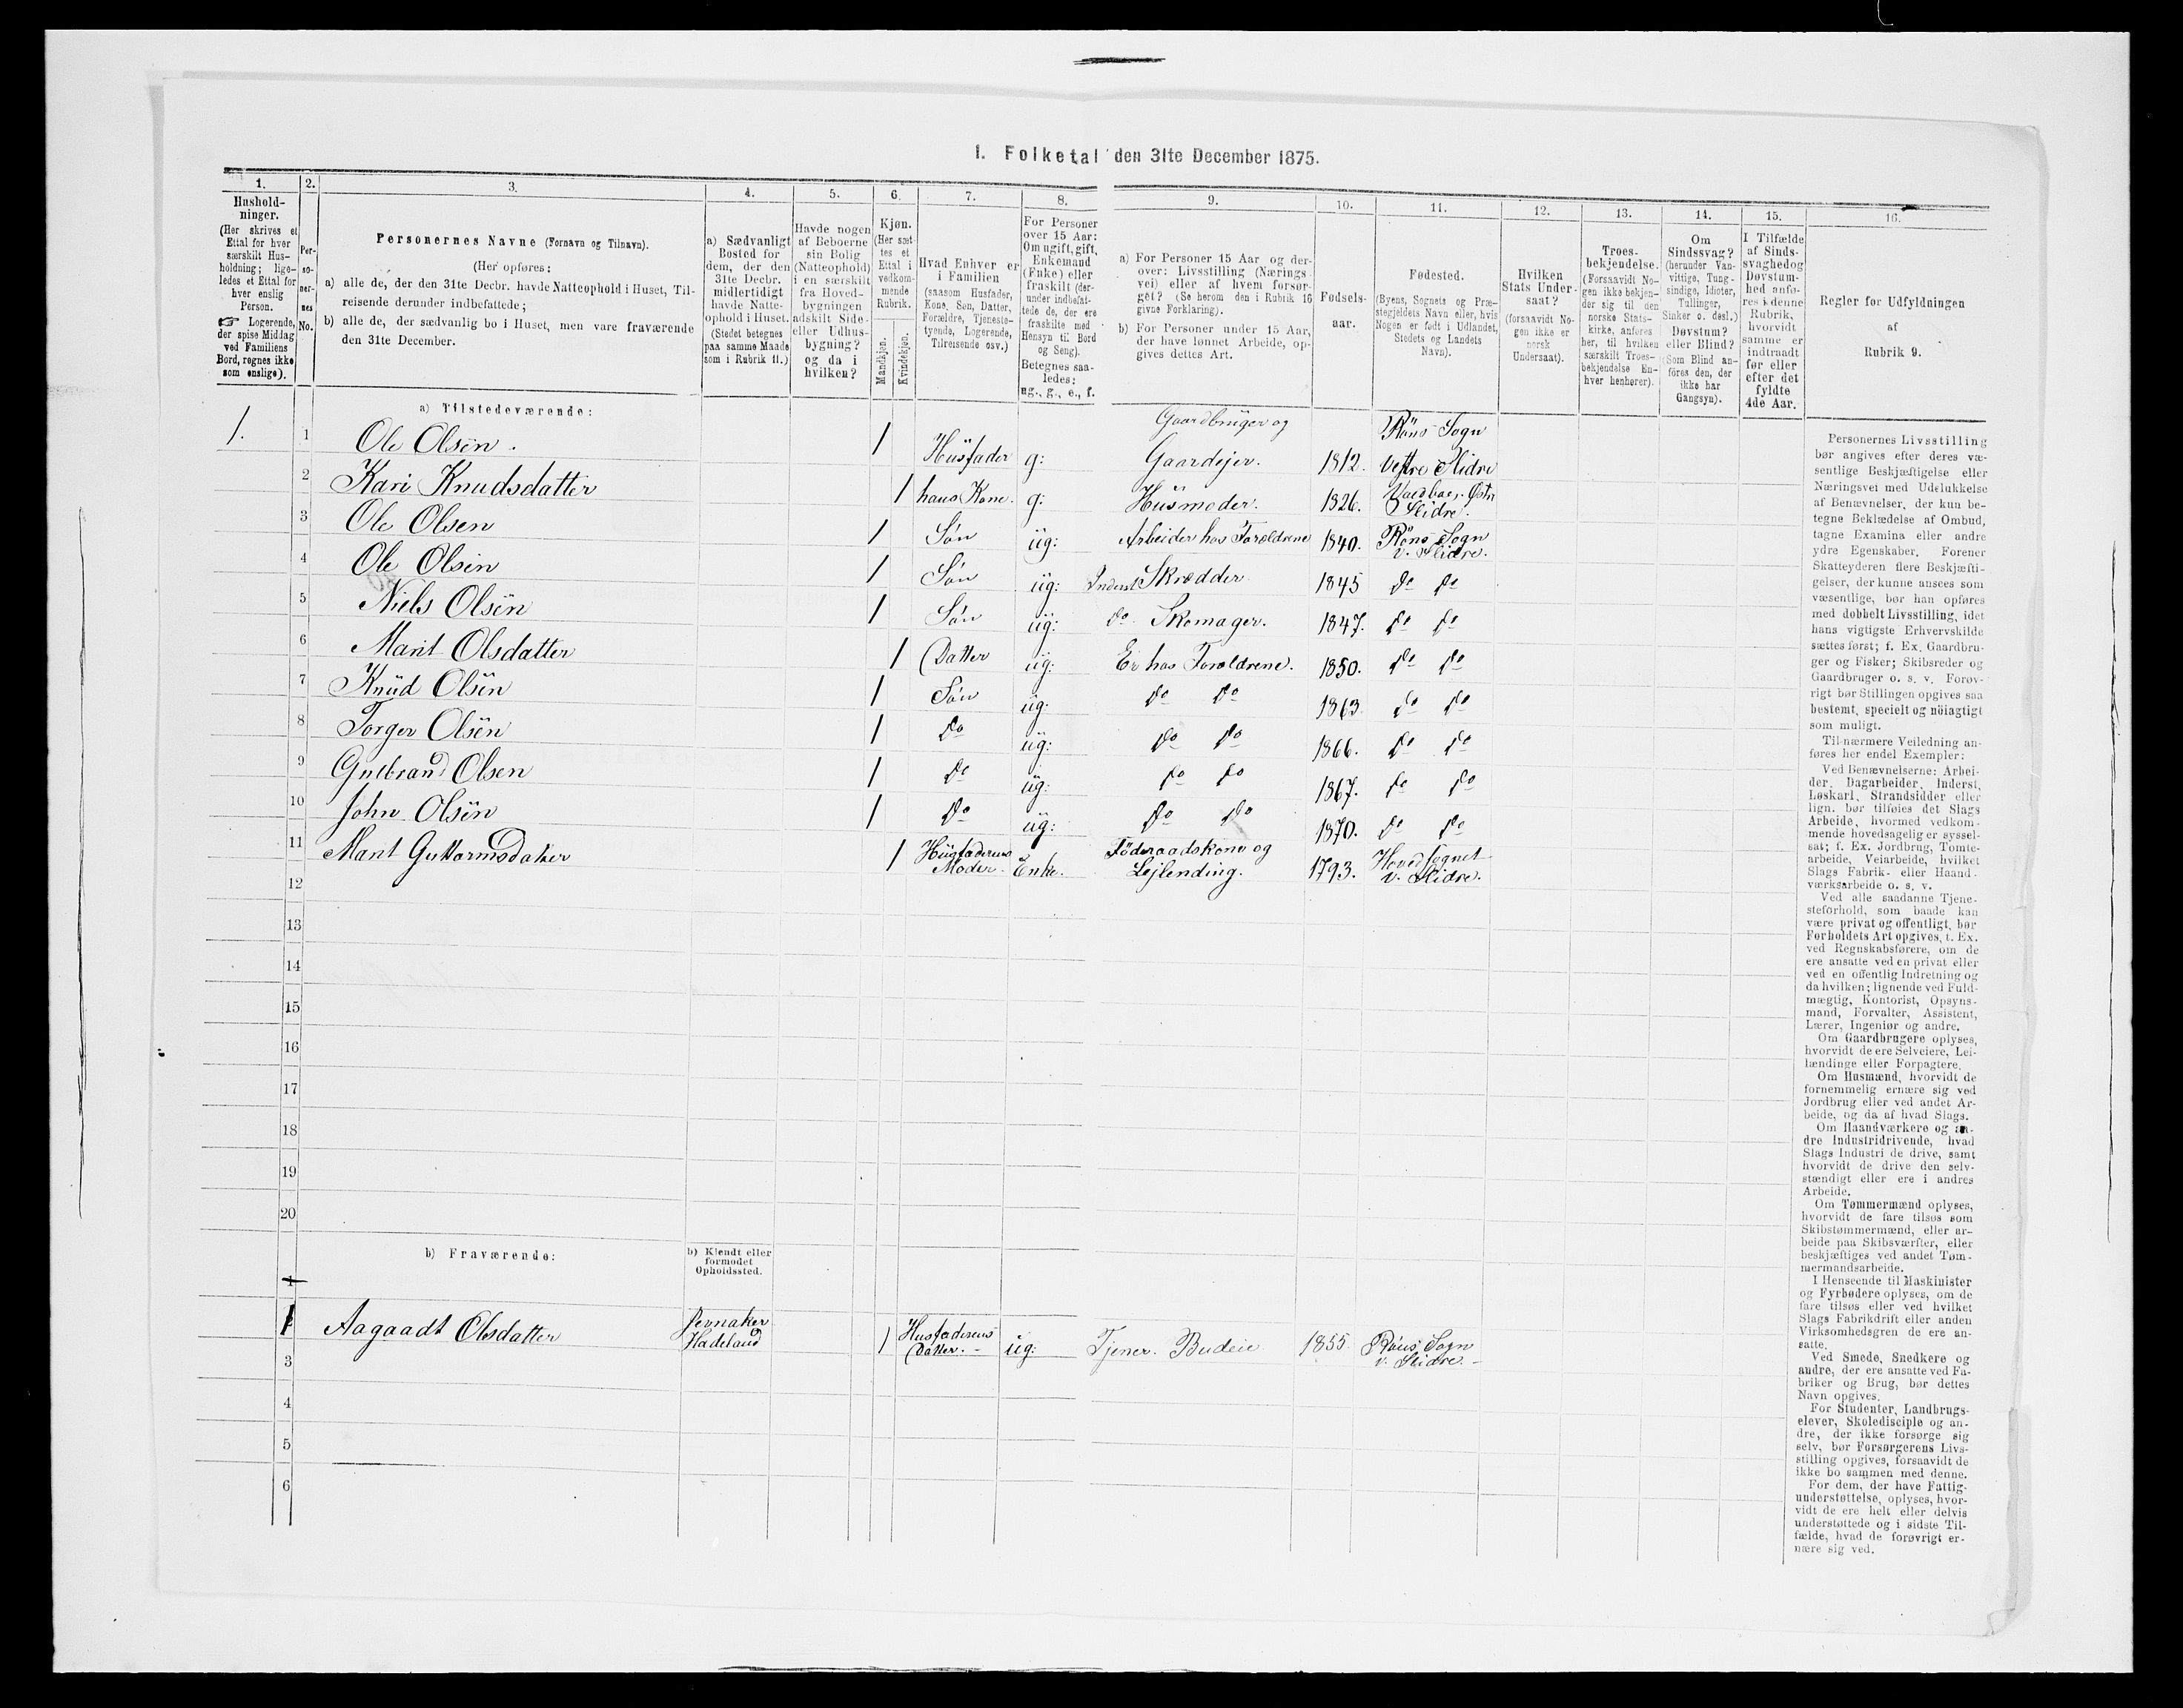 I. Folketal den 31te December 1875.
1. 2. 3. 4. 5. 6. 7. 8. 9. 10. 11. 12. 13. 14. 15. 16.
Hushold-
ninger.
(Her skrives et
Ettal for hver
særskilt Hus-
holdning; lige-
ledes et Ettal for
hver enslig
Person.
☞ Logerende,
der spise Middag
ved Familiens
Bord, regnes ikke
som enslige).
Per-
so-
ner-
nes
No.
Personernes Navne (Fornavn og Tilnavn).
(Her opføres:
a) alle de, der den 31te Decbr. havde Natteophold i Huset, Til-
reisende derunder indbefattede;
b) alle de, der sædvanlig bo i Huset, men vare fraværende
den 31te December.
a) Sædvanligt
Bosted for
dem, der den
31te Decbr.
midlertidigt
havde Natte-
ophold i Huset.
(Stedet betegnes
paa samme Maade
som i Rubrik 11.)
Havde nogen
af Beboerne
sin Bolig
(Natteophold)
i en særskilt
fra Hoved-
bygningen
adskilt Side-
eller Udhus-
bygning?
og da i
hvilken?
Kjøn.
(Her sæt-
tes et
Ettal i
vedkom-
mende
Rubrik.
Mandkjøn.
Kvindekjøn.
Hvad Enhver er
i Familien
(saasom Husfader,
Kone, Søn, Datter,
Forældre, Tjeneste-
tyende, Logerende,
Tilreisende osv.)
For Personer
over 15 Aar:
Om ugift, gift,
Enkemand
(Enke) eller
fraskilt (der-
under indbefat-
tede de, der ere
fraskilte med
Hensyn til Bord
og Seng).
Betegnes saa-
ledes:
ug., g., e., f.
a) For Personer 15 Aar og der-
over: Livsstilling (Nærings-
vei) eller af hvem forsør-
get? (Se herom den i Rubrik 16
givne Forklaring).
b) For Personer under 15 Aar,
der have lønnet Arbeide, op-
gives dettes Art.
Fødsels-
aar.
Fødested.
(Byens, Sognets og Præ-
stegjeldets Navn eller, hvis
Nogen er født i Udlandet,
Stedets og Landets
Navn).
Hvilken
Stats Under-
saat?
(forsaavidt No-
gen ikke er
norsk
Undersaat).
Troes-
bekjendelse.
(Forsaavidt No-
gen ikke bekjen-
der sig til den
norske Stats-
kirke, anføres
her, til hvilken
særskilt Troes-
bekjendelse En-
hver henhører).
Om
Sindssvag?
(herunder Van-
vittige, Tung-
sindige, Idioter,
Tullinger,
Sinker o. desl.)
Døvstum?
eller Blind?
(Som Blind an-
føres den, der
ikke har
Gangsyn).
I Tilfælde
af Sinds-
svaghed og
Døvstum-
hed anfø-
res i denne
Rubrik,
hvorvidt
samme er
indtraadt
før eller
efter det
fyldte
4de Aar.
Regler for Udfyldningen
af
Rubrik 9.
a) Tilstedeværende:
1. 1 Ole Olsen. 1 Husfader g: Gaardbruger og Gaardejer. 1812. Röns Sogn Vestre Slidre
2 Kari Knudsdatter 1 hans Kone. g: Husmoder. 1826. Østre Slidre.
3 Ole Olsen 1 Søn ug: Arbeider hos Forældrene 1840. Röns Sogn V. Slidre.
4 Ole Olsen 1 Søn ug: Inderst Skrædder 1845 Do Do
5 Niels Olsen 1 Søn ug: Do. Skomager. 1847. Do Do
6 Marit Olsdatter 1 Datter ug: Er hos Forældrene. 1850. Do Do
7 Knud Olsen 1 Søn ug: Do Do 1863. Do Do
8 Torger Olsen 1 Do ug: Do Do 1866. Do Do
9 Gulbrand Olsen 1 Do ug: Do Do 1867. Do Do
10 John Olsen 1 Do ug: Do Do 1870. Do Do
11 Marit Guttormsdatter 1 Husfaderens Moder. Enke. Föderaadskone og Lejlending. 1793. Hovedsognet V. Slidre.
12
13
14
15
16
17
18
19
20
b) Fraværende:
b) Kjendt eller
formodet
Opholdssted.
1
1 Aagaadt Olsdatter Jevnaker Hadeland 1 Husfaderens Datter. ug: Tjener. Budeie 1855. Röns Sogn V. Slidre.
3
4
5
6
Personernes Livsstilling
bør angives efter deres væ-
sentlige Beskjæftigelse eller
Næringsvei med Udelukkelse
af Benævnelser, der kun be-
tegne Beklædelse af Ombud,
tagne Examina eller andre
ydre Egenskaber. Forener
Skatteyderen flere Beskjæfti-
gelser, der kunne ansees som
væsentlige, bør han opføres
med dobbelt Livsstilling, idet
hans vigtigste Erhvervskilde
sættes først; f. Ex. Gaardbru-
ger og Fisker; Skibsreder og
Gaardbruger o. s. v. Forøv-
rigt bør Stillingen opgives saa
bestemt, specielt og nöiagtigt
som muligt.
Til nærmere Veiledning an-
føres her endel Exempler:
Ved Benævnelserne: Arbei-
der, Dagarbeider, Inderst,
Løskarl, Strandsidder eller
lign. bør tilføies det Slags
Arbeide, hvormed vedkom-
mende hovedsagelig er syssel-
sat; f. Ex. Jordbrug, Tomte-
arbeide, Veiarbeide, hvilket
Slags Fabrik- eller Haand-
værksarbeide o. s. v.
Ved alle saadanne Tjene-
steforhold, som baade kan
være privat og offentligt, bør
Forholdets Art opgives, t. Ex.
ved Regnskabsførere, om de
ere ansatte ved en privat eller
ved en offentlig Indretning og
da hvilken; lignende ved Fuld-
mægtig, Kontorist, Opsyns-
mand, Forvalter, Assistent,
Lærer, Ingeniør og andre.
Om Gaardbrugere oplyses,
hvorvidt de ere Selveiere, Lei-
lændinge eller Forpagtere.
Om Husmænd, hvorvidt de
fornemmelig ernære sig ved
Jordbrug eller ved andet Ar-
beide, og da af hvad Slags.
Om Haandværkere og an-
dre Industridrivende, hvad
Slags Industri de drive, samt
hvorvidt de drive den selv-
stændigt eller ere i andres
Arbeide.
Om Tømmermænd oplyses,
hvorvidt de fare tilsøs som
Skibstømmermænd, eller ar-
beide paa Skibsværfter, eller
beskjæftiges ved andet Tøm-
mermandsarbeide.
I Henseende til Maskinister
og Fyrbødere oplyses, om de
fare tilsøs eller ved hvilket
Slags Fabrikdrift eller anden
Virksomhedsgren de ere an-
satte.
Ved Smede, Snedkere og
andre, der ere ansatte ved Fa-
briker og Brug, bør dettes
Navn opgives.
For Studenter, Landbrugs-
elever, Skoledisciple og an-
dre, der ikke forsørge sig
selv, bør Forsørgerens Livs-
stilling opgives, forsaavidt de
ikke bo sammen med denne.
For dem, der have Fattig-
understøttelse, oplyses, hvor-
vidt de ere helt eller delvis
understøttede og i sidste Til-
fælde, hvad de forøvrigt er-
nære sig ved.